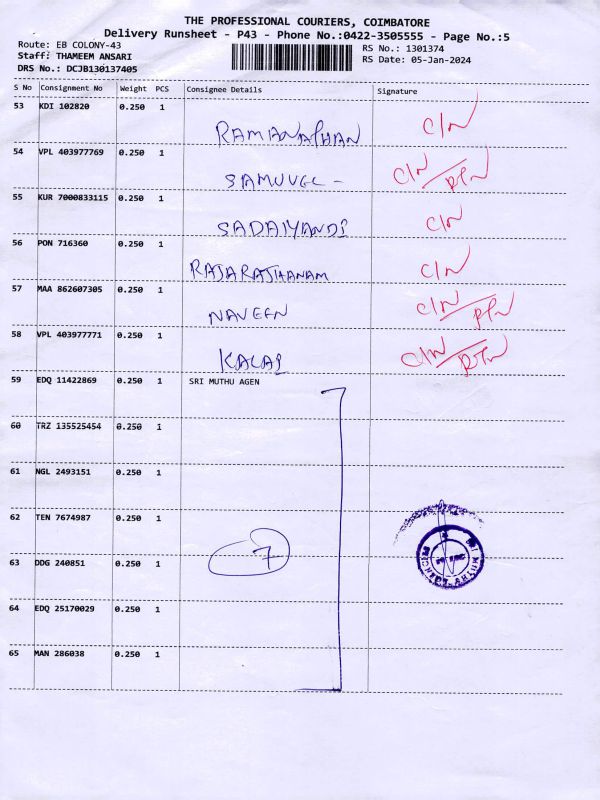 THE PROFESSIONAL COURIERS, COIMBATORE
Delivery Runsheet - P43 - Phone No.:0422-3505555 - Page No.:5
Route: EB COLONY-43
RS No.: 1301374
Staff: THAMEEM ANSARI
RS Date: 05-Jan-2024
DRS No.: DCJB130137405
S No Consignment No Weight PCS Consignee Details Signature
53 KDI 102820 0.250 1 RAMANATHAN C/N
54 VPL 403977769 0.250 1 SAMUVEL - C/N RTN
55 KUR 7000833115 0.250 1 SADAIYANDI C/N
56 PON 716360 0.250 1 RAJARATHANAM C/N
57 MAA 862607305 0.250 1 NAVEEN C/N RTN
58 VPL 403977771 0.250 1 KALAI C/N RTN
59 EDQ 11422869 0.250 1 SRI MUTHU AGEN
60 TRZ 135525454 0.250 1
61 NGL 2493151 0.250 1
62 TEN 7674987 0.250 1
63 DDG 240851 0.250 1 7
64 EDQ 25170029 0.250 1
65 MAN 286038 0.250 1